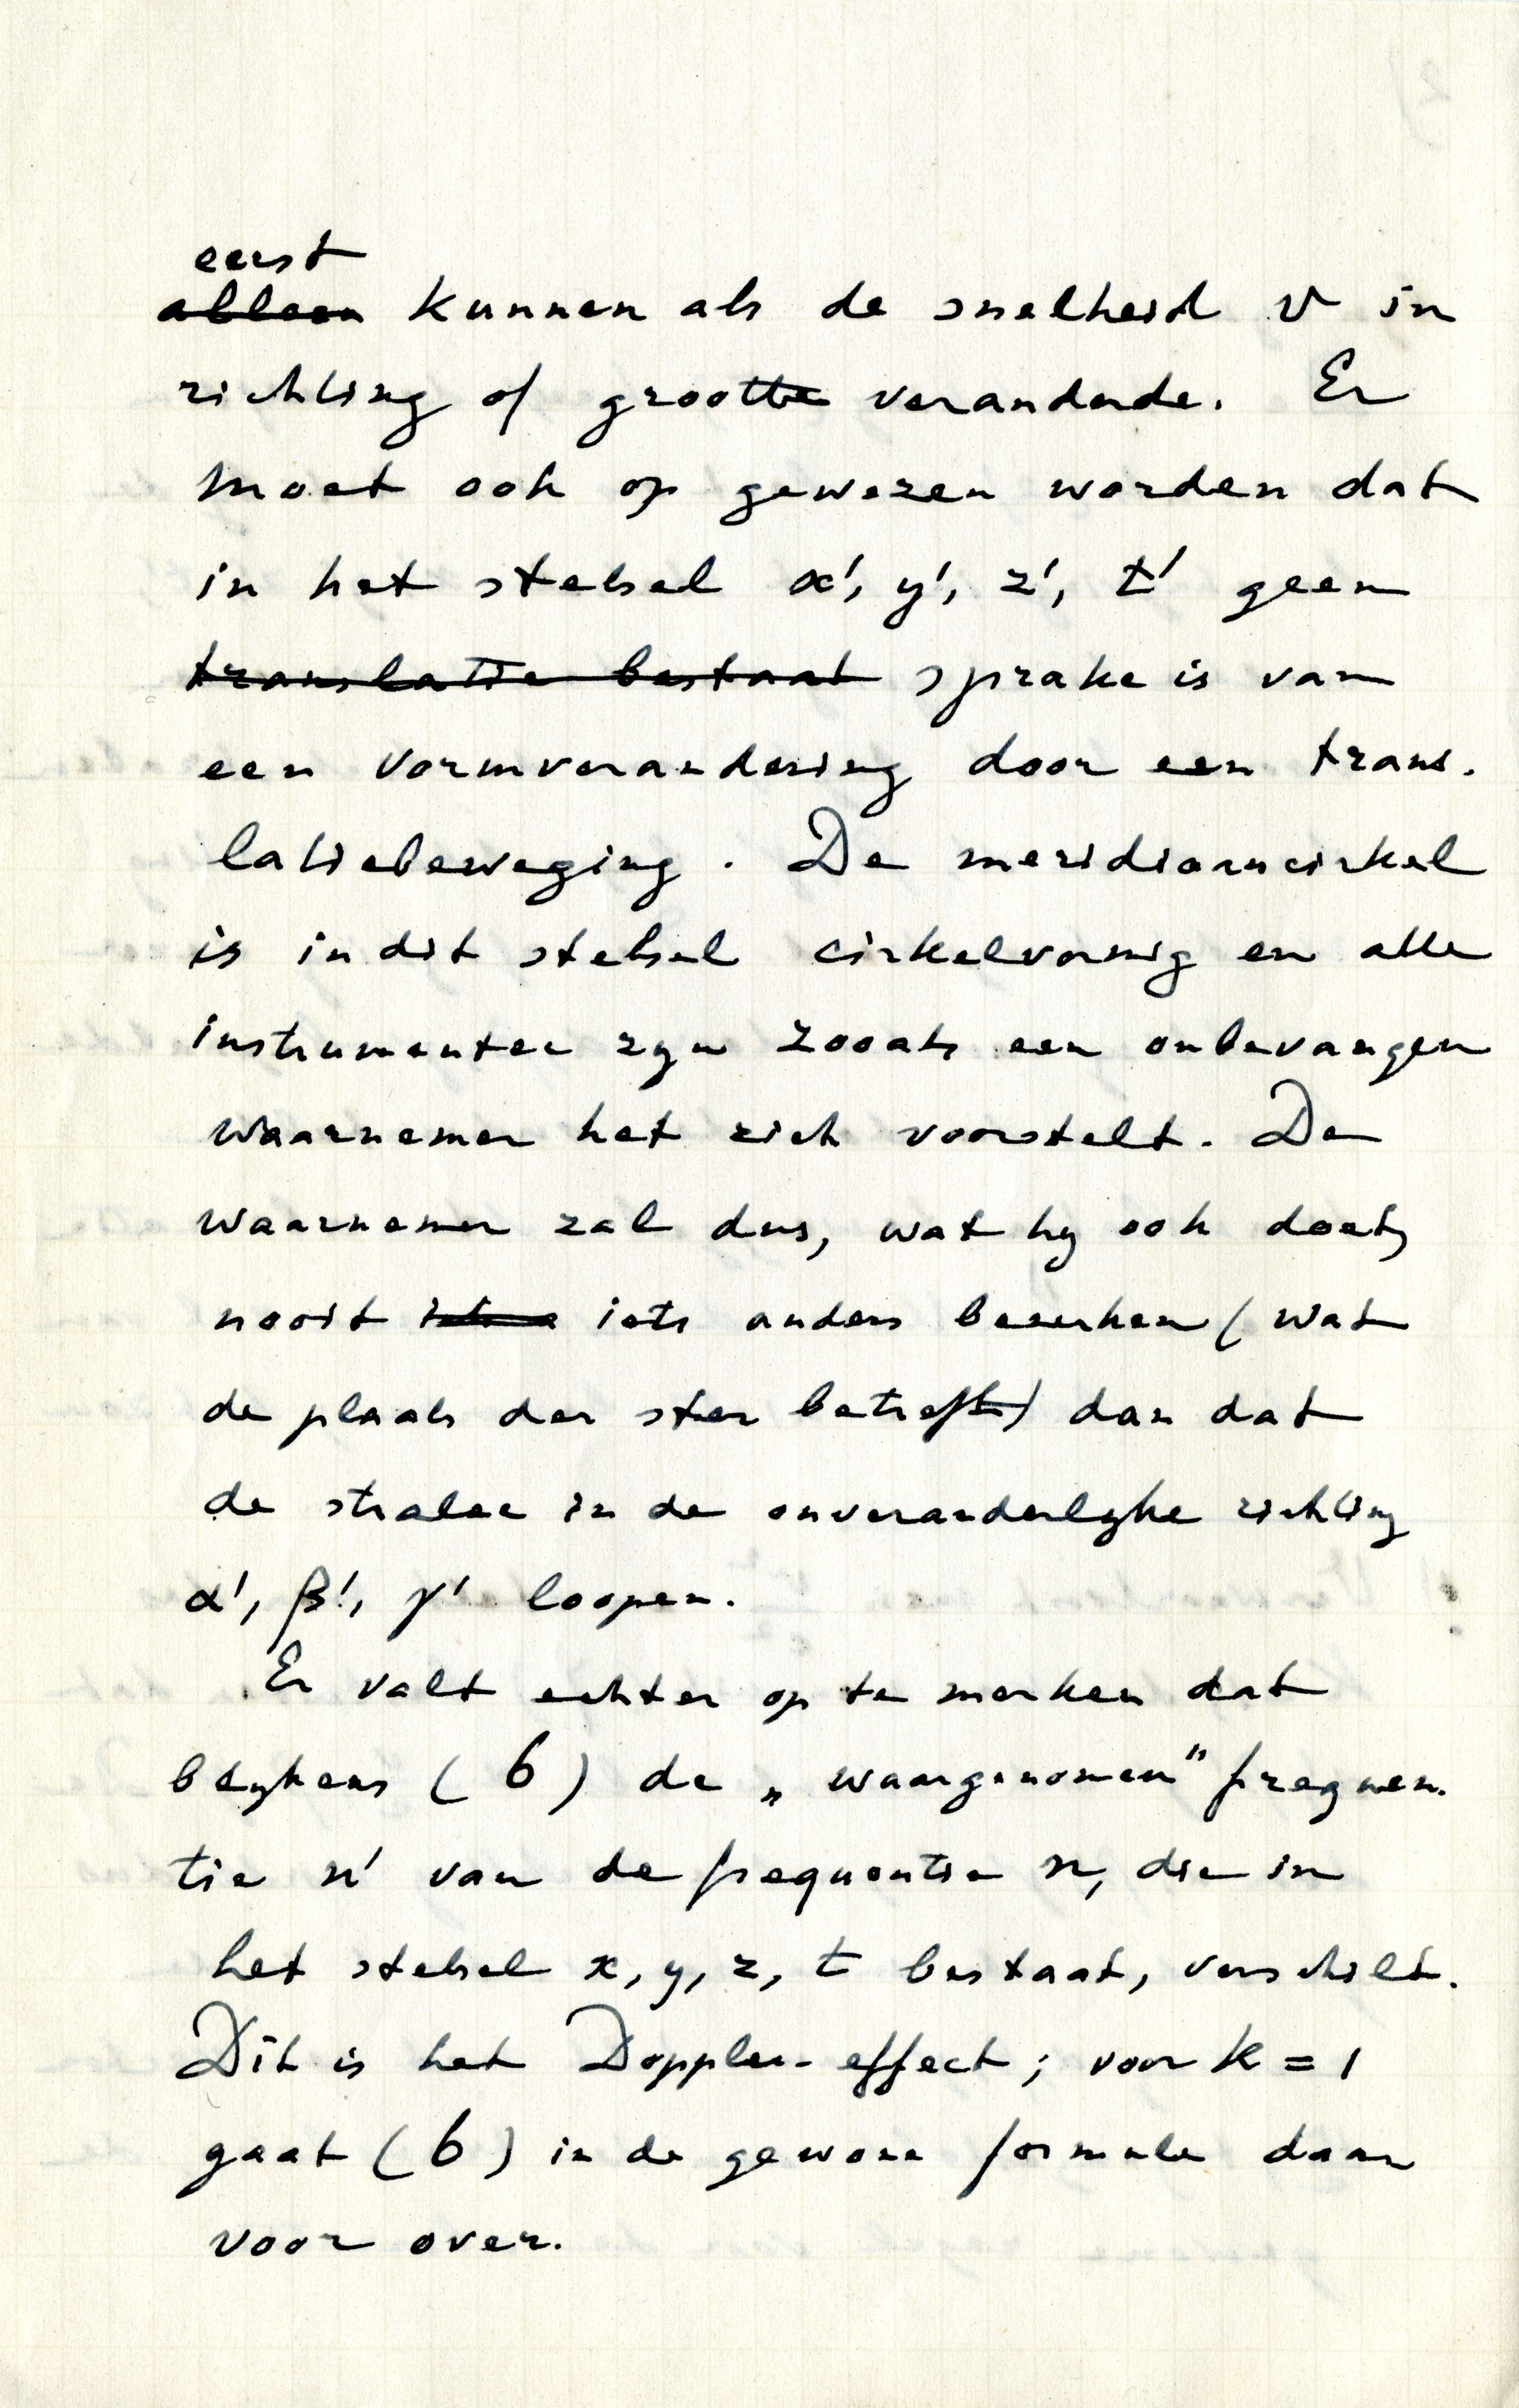 eerst
alleen kunnen als de snelheid v in
richting of grootte veranderde. Er
moet ook op gewezen worden dat
in het stelsel x', y', z', t' geen
translatie bestaat sprake is van
een vormverandering door een trans-
latiebeweging. De meridiaancirkel
is in dit stelsel cirkelvormig en alle
instrumenten zyn zooals een onbevangen
waarnemer het zich voorstelt. De
waarnemer zal dus, wat hy ook doet,
nooit iets anders bemerken (wat
de plaats der ster betreft) dan dat
de stralen in de onveranderlyke richting
α', β', γ' loopen.
Er valt echter op te merken dat
blykens (6) de „waargenomen" frequen-
tie n' van de frequentie n, die in
het stelsel x, y, z, t bestaat, verschilt.
Dit is het Doppler-effect; voor k = 1
gaat (6) in de gewone formule daar
voor over.